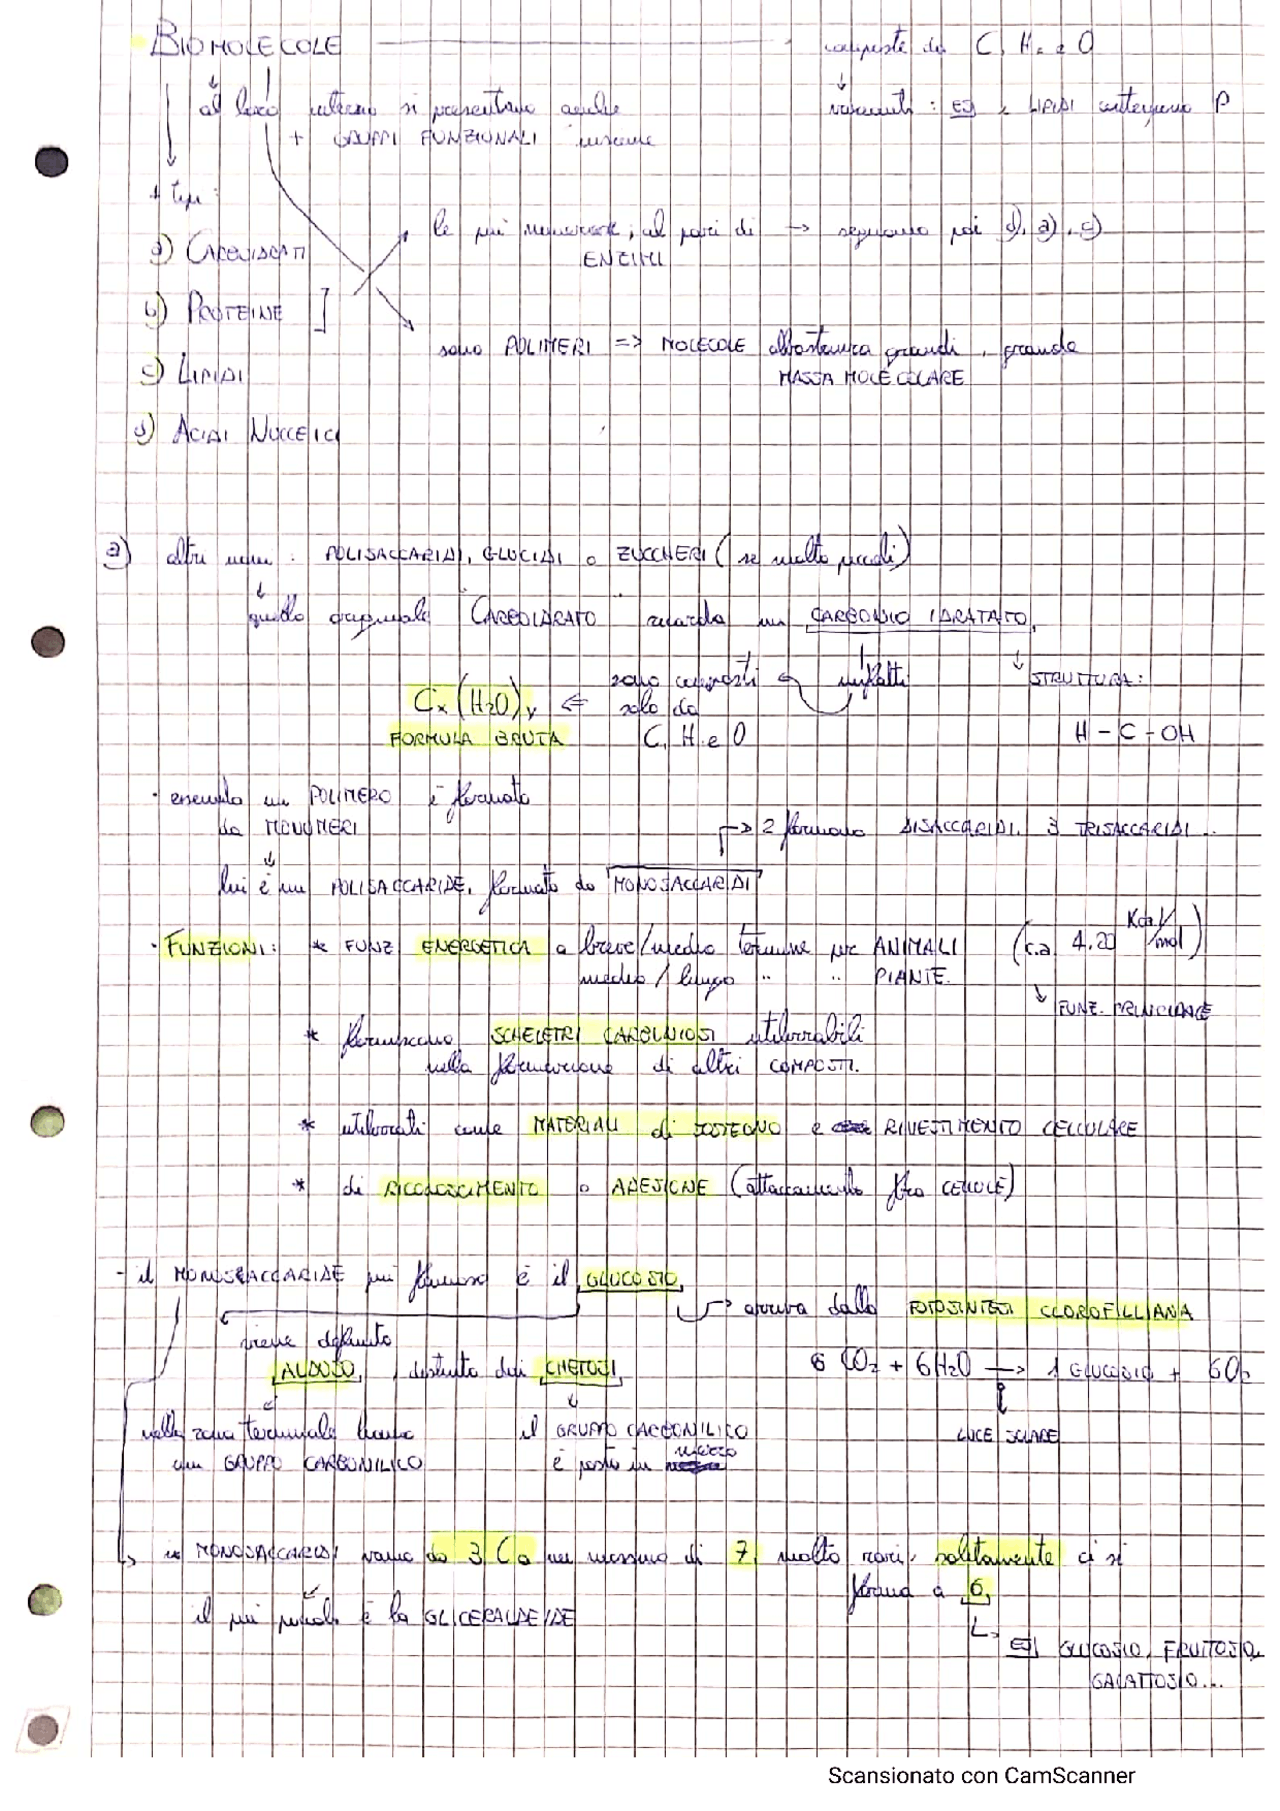 BIOMOLECOLE composte da C, H e O
al loro interno si presentano anche raramente: ES i LIPIDI contengono P
+ GRUPPI FUNZIONALI insieme
4 tipi:
le più numerose, al pari di → seguono poi d), a), c)
a) CARBOIDRATI ENZIMI
b) PROTEINE ]
sono POLIMERI => MOLECOLE abbastanza grandi, grande
c) LIPIDI MASSA MOLECOLARE
d) ACIDI NUCLEICI
a) altri nomi: POLISACCARIDI, GLUCIDI o ZUCCHERI (se molto piccoli)
quello originale "CARBOIDRATO" ricorda un CARBONIO IDRATATO,
Cx(H2O)y <= sono composti infatti STRUTTURA:
solo da
FORMULA BRUTA C, H e O H-C-OH
· essendo un POLIMERO è formato
da MONOMERI → 2 formano DISACCARIDI, 3 TRISACCARIDI...
lui è un POLISACCARIDE, formato da MONOSACCARIDI
· FUNZIONI: * FUNZ ENERGETICA a breve/medio termine per ANIMALI (c.a. 4,20 Kcal/mol)
medio/lungo " " PIANTE.
FUNZ. PRINCIPALE
* forniscono SCHELETRI CARBONIOSI utilizzabili
nella formazione di altri COMPOSTI.
* utilizzati come MATERIALI di SOSTEGNO e RIVESTIMENTO CELLULARE
* di RICONOSCIMENTO o ADESIONE (attaccamento fra CELLULE)
- il MONOSACCARIDE più famoso è il GLUCOSIO,
→ arriva dalla FOTOSINTESI CLOROFILLIANA
viene definito
ALDOSO, distinto dai CHETOSI, 6 CO2 + 6H2O → 1 GLUCOSIO + 6O2
nella zona terminale hanno il GRUPPO CARBONILICO LUCE SOLARE
un GRUPPO CARBONILICO è posto in mezzo
i MONOSACCARIDI vanno da 3 C a un massimo di 7, molto rari, solitamente ci si
ferma a 6,
il più piccolo è la GLICERALDEIDE
ES GLUCOSIO, FRUTTOSIO,
GALATTOSIO...
Scansionato con CamScanner